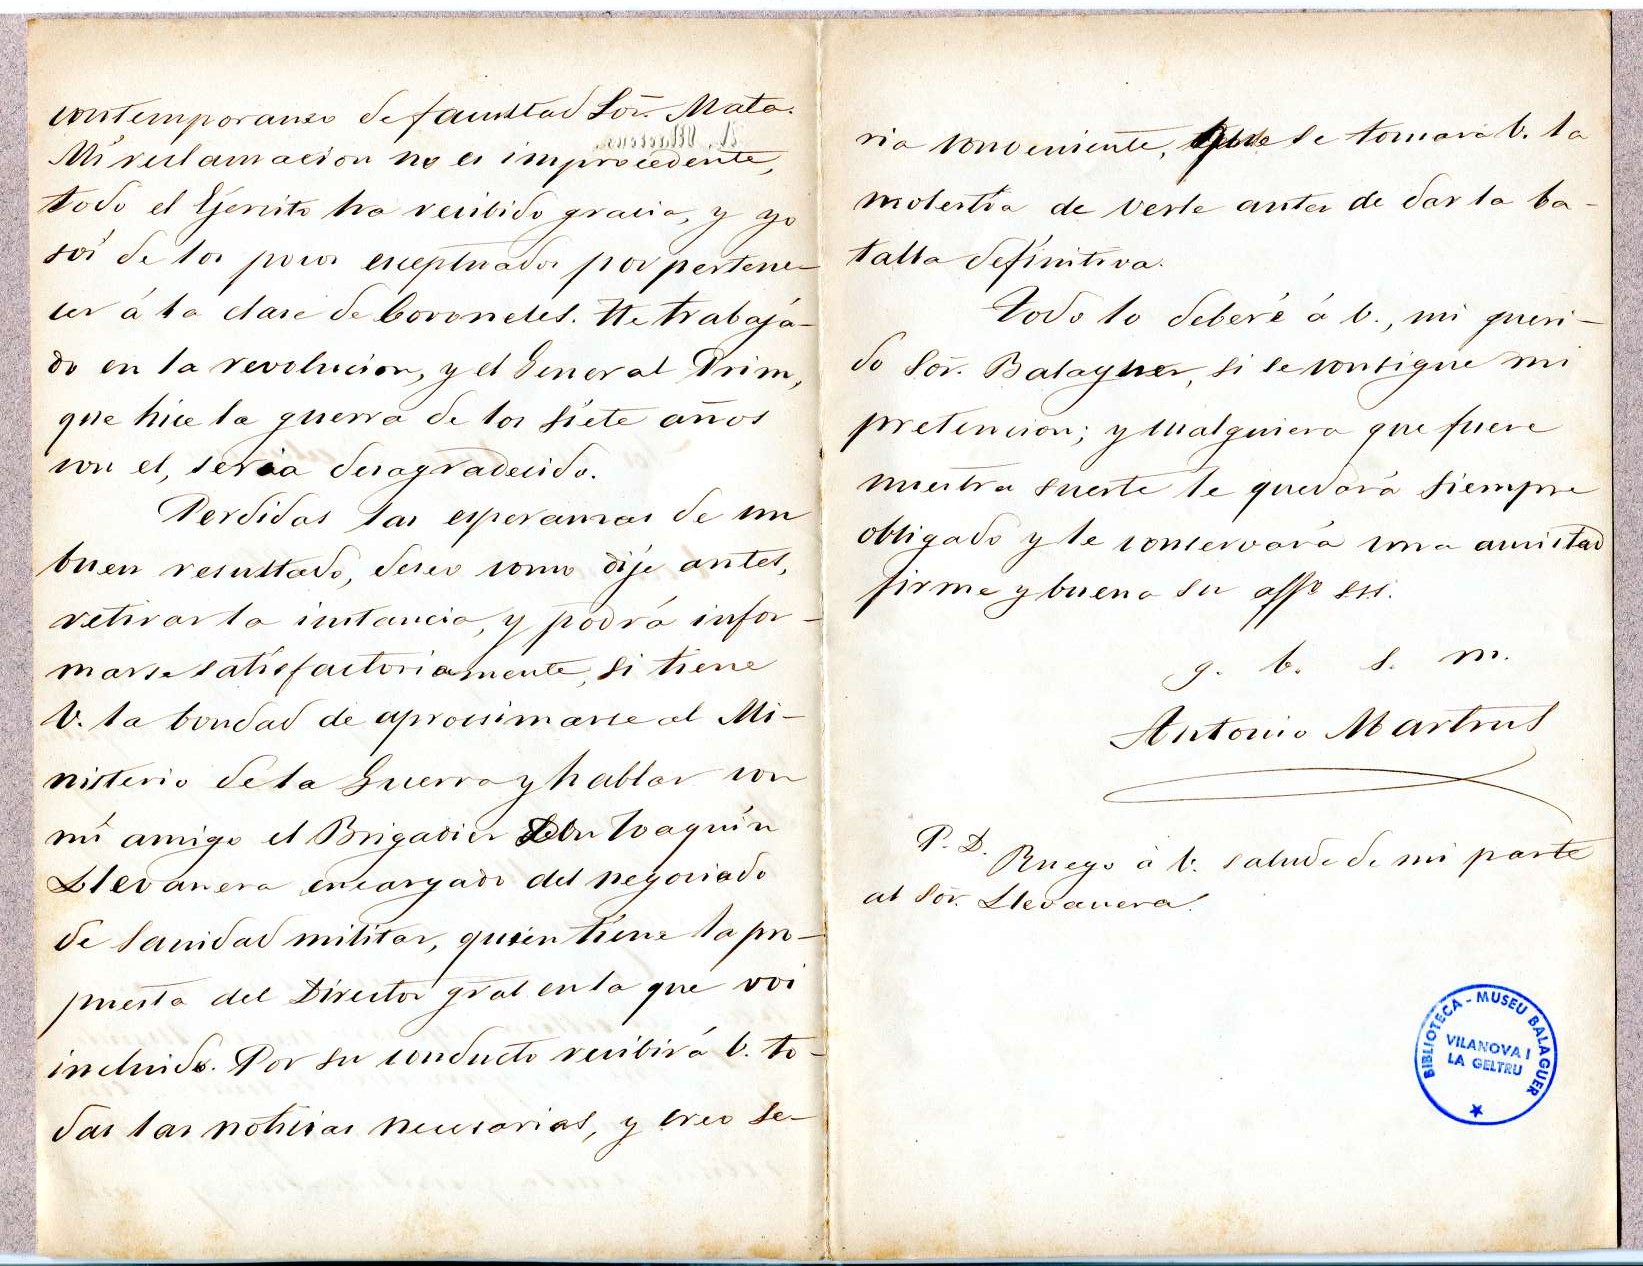 contemporaneo de facultad Sor. Mata.
Mi reclamacion no es improcedente,
todo el Ejército ha recibido gracia, y yo
soi de los pocos exceptuados por pertene-
cer á la clase de Coroneles. He trabajá-
do en la revolucion, y el General Prim,
que hice la guerra de los siete años
con el, seria desagradecido.
Perdidas las esperansas de un
buen resultado, deseo como dije antes,
retirar la instancia, y podrá infor-
marse satisfactoriamente, si tiene
V. la bondad de aprossimarse al Mi-
nisterio de la Guerra y hablar con
mi amigo el Brigadier Don Joaquín
Llevanera encargado del negociado
de Sanidad militar, quien tiene la pro-
puesta del Director gral en la que voi
incluido. Por su conducto recibirá V. to-
das las noticias necesarias, y creo se-
ria conveniente, que se tomará V. la
molestia de verle antes de dar la ba-
talla definitiva.
Todo lo deberé á V., mi queri-
do Sor. Balaguer, si se consigue mi
pretencion; y cualquiera que fuere
nuestra suerte le quedará siempre
obligado y le conservará una amistad
firme y buena su affo SSS.
q. b. s. m.
Antonio Martrus
P. D. Ruego á V. salude de mi parte
al Sor. Llevanera.
BIBLIOTECA - MUSEU BALAGUER
VILANOVA I
LA GELTRU